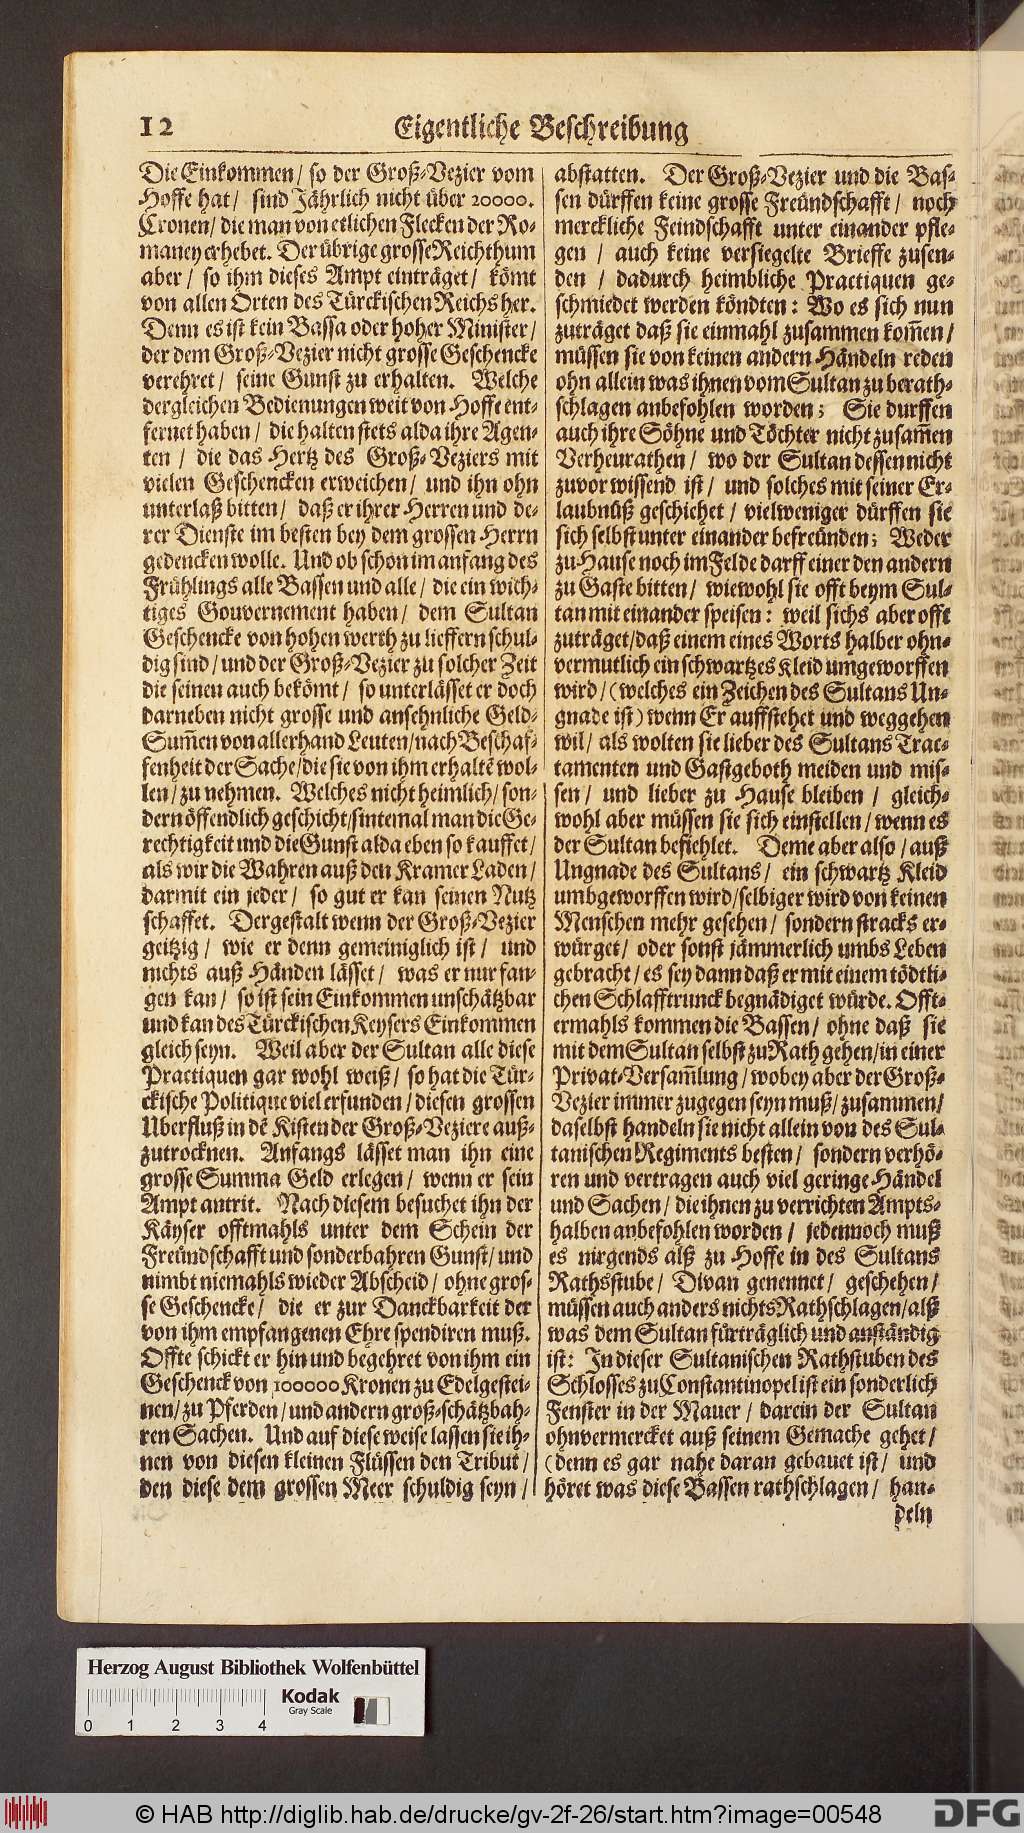 12
Eigentliche Beschreibung
Die Einkommen / so der Groß-Vezier vom
Hoffe hat / sind Jährlich nicht über 20000.
Cronen / die man von etlichen Flecken der Ro-
maney erhebet. Der übrige grosse Reichthum
aber / so ihm dieses Ampt einträget / kömt
von allen Orten des Türckischen Reichs her.
Denn es ist kein Bassa oder hoher Minister /
der dem Groß-Vezier nicht grosse Geschencke
verehret / seine Gunst zu erhalten. Welche
dergleichen Bedienungen weit von Hoffe ent-
fernet haben / die halten stets alda ihre Agen-
ten / die das Hertz des Groß-Veziers mit
vielen Geschencken erweichen / und ihn ohn
unterlaß bitten / daß er ihrer Herren und de-
rer Dienste im besten bey dem grossen Herrn
gedencken wolle. Und ob schon im anfang des
Frühlings alle Bassen und alle / die ein wich-
tiges Gouvernement haben / dem Sultan
Geschencke von hohen werth zu lieffern schul-
dig sind / und der Groß-Vezier zu solcher Zeit
die seinen auch bekömt / so unterlässet er doch
darneben nicht grosse und ansehnliche Geld-
Sum̃en von allerhand Leuten / nach Beschaf-
fenheit der Sache / die sie von ihm erhaltẽ wol-
len / zu nehmen. Welches nicht heimlich / son-
dern öffendlich geschicht / sintemal man die Ge-
rechtigkeit und die Gunst alda eben so kauffet /
als wir die Wahren auß den Kramer Laden /
darmit ein jeder / so gut er kan seinen Nutz
schaffet. Dergestalt wenn der Groß-Vezier
geitzig / wie er denn gemeiniglich ist / und
nichts auß Händen lässet / was er nur fan-
gen kan / so ist sein Einkommen unschätzbar
und kan des Türckischen Keysers Einkommen
gleich seyn. Weil aber der Sultan alle diese
Practiquen gar wohl weiß / so hat die Tür-
ckische Politique viel erfunden / diesen grossen
Uberfluß in dẽ Kisten der Groß-Veziere auß-
zutrocknen. Anfangs lässet man ihn eine
grosse Summa Geld erlegen / wenn er sein
Ampt antrit. Nach diesem besuchet ihn der
Käyser offtmahls unter dem Schein der
Freundschafft und sonderbahren Gunst / und
nimbt niemahls wieder Abscheid / ohne gros-
se Geschencke / die er zur Danckbarkeit der
von ihm empfangenen Ehre spendiren muß.
Offte schickt er hin und begehret von ihm ein
Geschenck von 100000 Kronen zu Edelgestei-
nen / zu Pferden / und andern groß-schätzbah-
ren Sachen. Und auf diese weise lassen sie ih-
nen von diesen kleinen Flüssen den Tribut /
den diese dem grossen Meer schuldig seyn /
abstatten. Der Groß-Vezier und die Bas-
sen dürffen keine grosse Freündschafft / noch
merckliche Feindschafft unter einander pfle-
gen / auch keine versiegelte Brieffe zusen-
den / dadurch heimbliche Practiquen ge-
schmiedet werden köndten: Wo es sich nun
zuträget daß sie einmahl zusammen kom̃en /
müssen sie von keinen andern Händeln reden
ohn allein was ihnen vom Sultan zu berath-
schlagen anbefohlen worden; Sie durffen
auch ihre Söhne und Töchter nicht zusam̃en
Verheurathen / wo der Sultan dessen nicht
zuvor wissend ist / und solches mit seiner Er-
laubnüß geschiehet / vielweniger dürffen sie
sich selbst unter einander befreünden; Weder
zu Hause noch im Felde darff einer den andern
zu Gaste bitten / wiewohl sie offt beym Sul-
tan mit einander speisen: weil sichs aber offt
zuträget / daß einem eines Worts halber ohn-
vermutlich ein schwartzes Kleid umgeworffen
wird / (welches ein Zeichen des Sultans Un-
gnade ist) wenn Er auffstehet und weggehen
wil / als wolten sie lieber des Sultans Trac-
tamenten und Gastgeboth meiden und mis-
sen / und lieber zu Hause bleiben / gleich-
wohl aber müssen sie sich einstellen / wenn es
der Sultan befiehlet. Deme aber also / auß
Ungnade des Sultans / ein schwartz Kleid
umbgeworffen wird / selbiger wird von keinen
Menschen mehr gesehen / sondern stracks er-
würget / oder sonst jämmerlich umbs Leben
gebracht / es sey dann daß er mit einem tödtli-
chen Schlafftrunck begnädiget würde. Offt-
ermahls kommen die Bassen / ohne daß sie
mit dem Sultan selbst zu Rath gehen / in einer
Privat-Versam̃lung / wobey aber der Groß-
Vezier immer zugegen seyn muß / zusammen /
daselbst handeln sie nicht allein von des Sul-
tanischen Regiments besten / sondern verhö-
ren und vertragen auch viel geringe Händel
und Sachen / die ihnen zu verrichten Ampts-
halben anbefohlen worden / jedennoch muß
es nirgends alß zu Hoffe in des Sultans
Rathsstube / Divan genennet / geschehen /
müssen auch anders nichts Rathschlagen / alß
was dem Sultan fürträglich und anständig
ist: In dieser Sultanischen Rathstuben des
Schlosses zu Constantinopel ist ein sonderlich
Fenster in der Mauer / darein der Sultan
ohnvermercket auß seinem Gemache gehet /
(denn es gar nahe daran gebauet ist / und
höret was diese Bassen rathschlagen / han-
deln
Herzog August Bibliothek Wolfenbüttel
Kodak
Gray Scale
0 1 2 3 4
© HAB http://diglib.hab.de/drucke/gv-2f-26/start.htm?image=00548
DFG